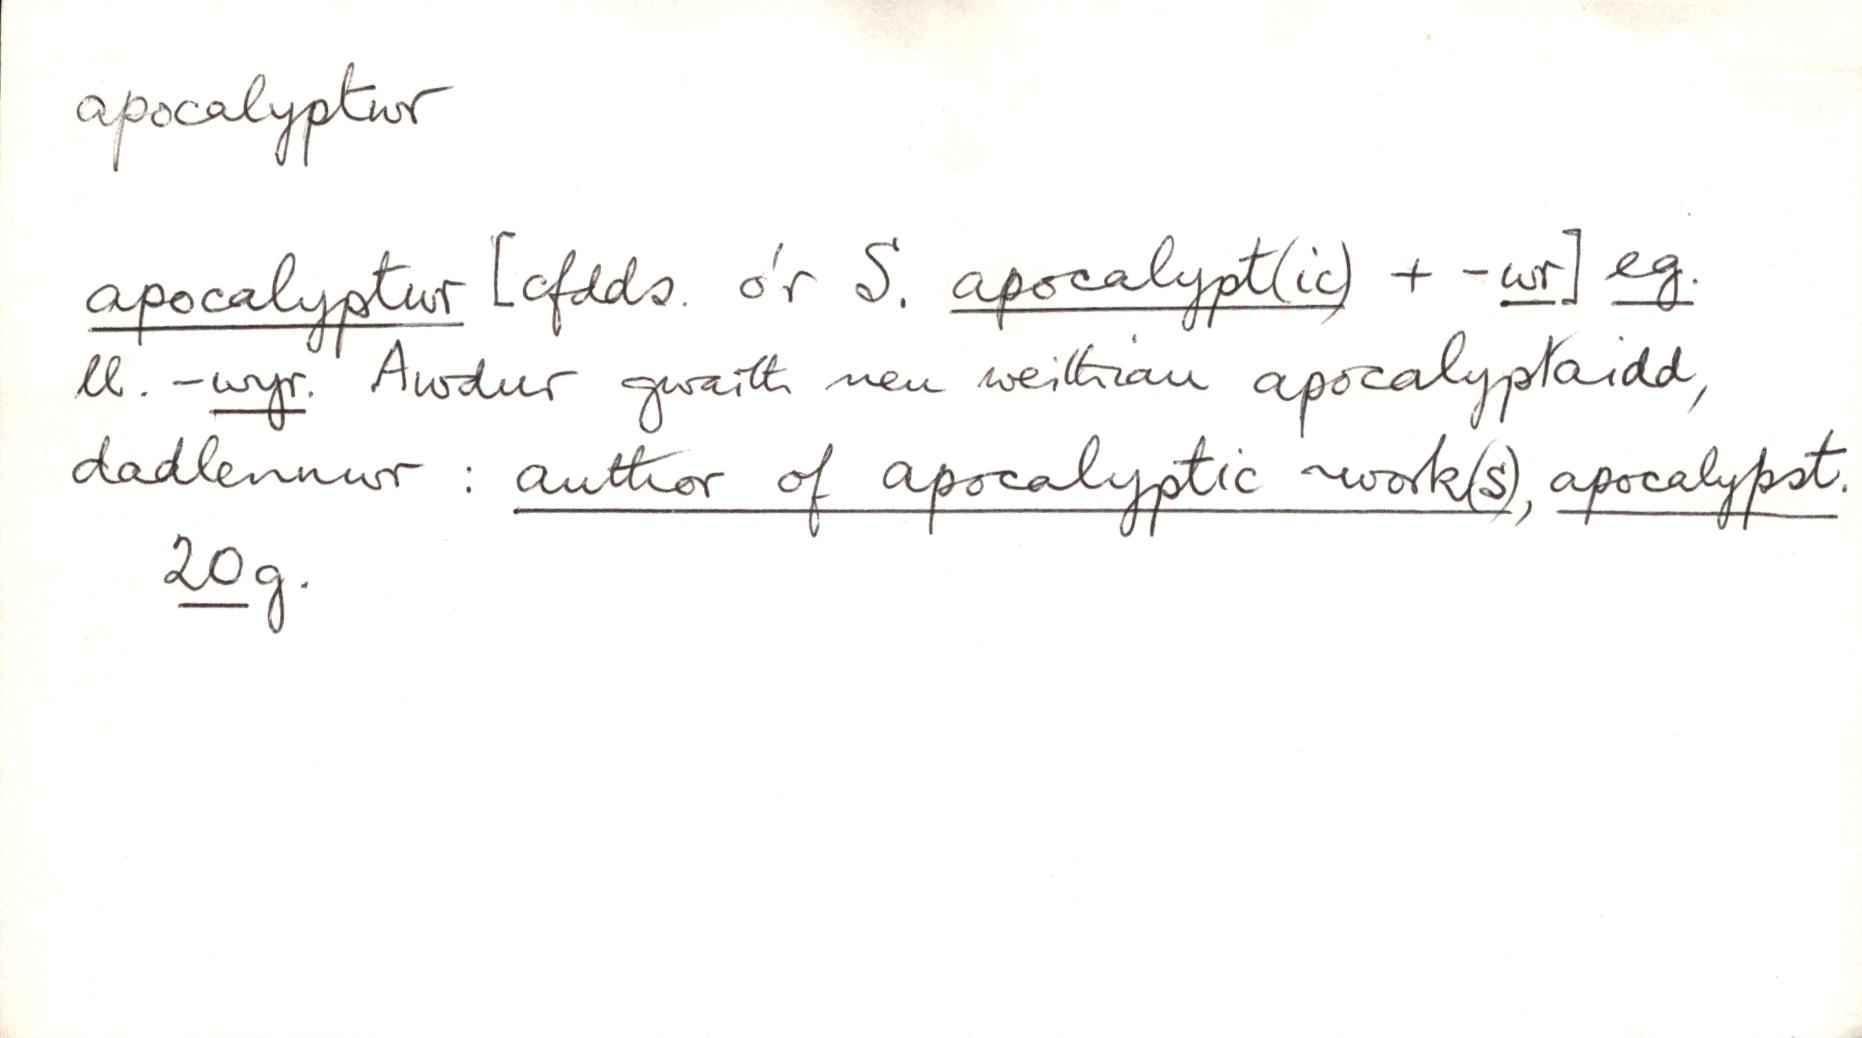 apocalyptwr
apocalyptwr [cfdds. o'r S. apocalypt(ic) + -wr] eg.
ll. -wyr. Awdur gwaith neu weithiau apocalyptaidd,
dadlennwr : author of apocalyptic work(s), apocalypst.
20g.